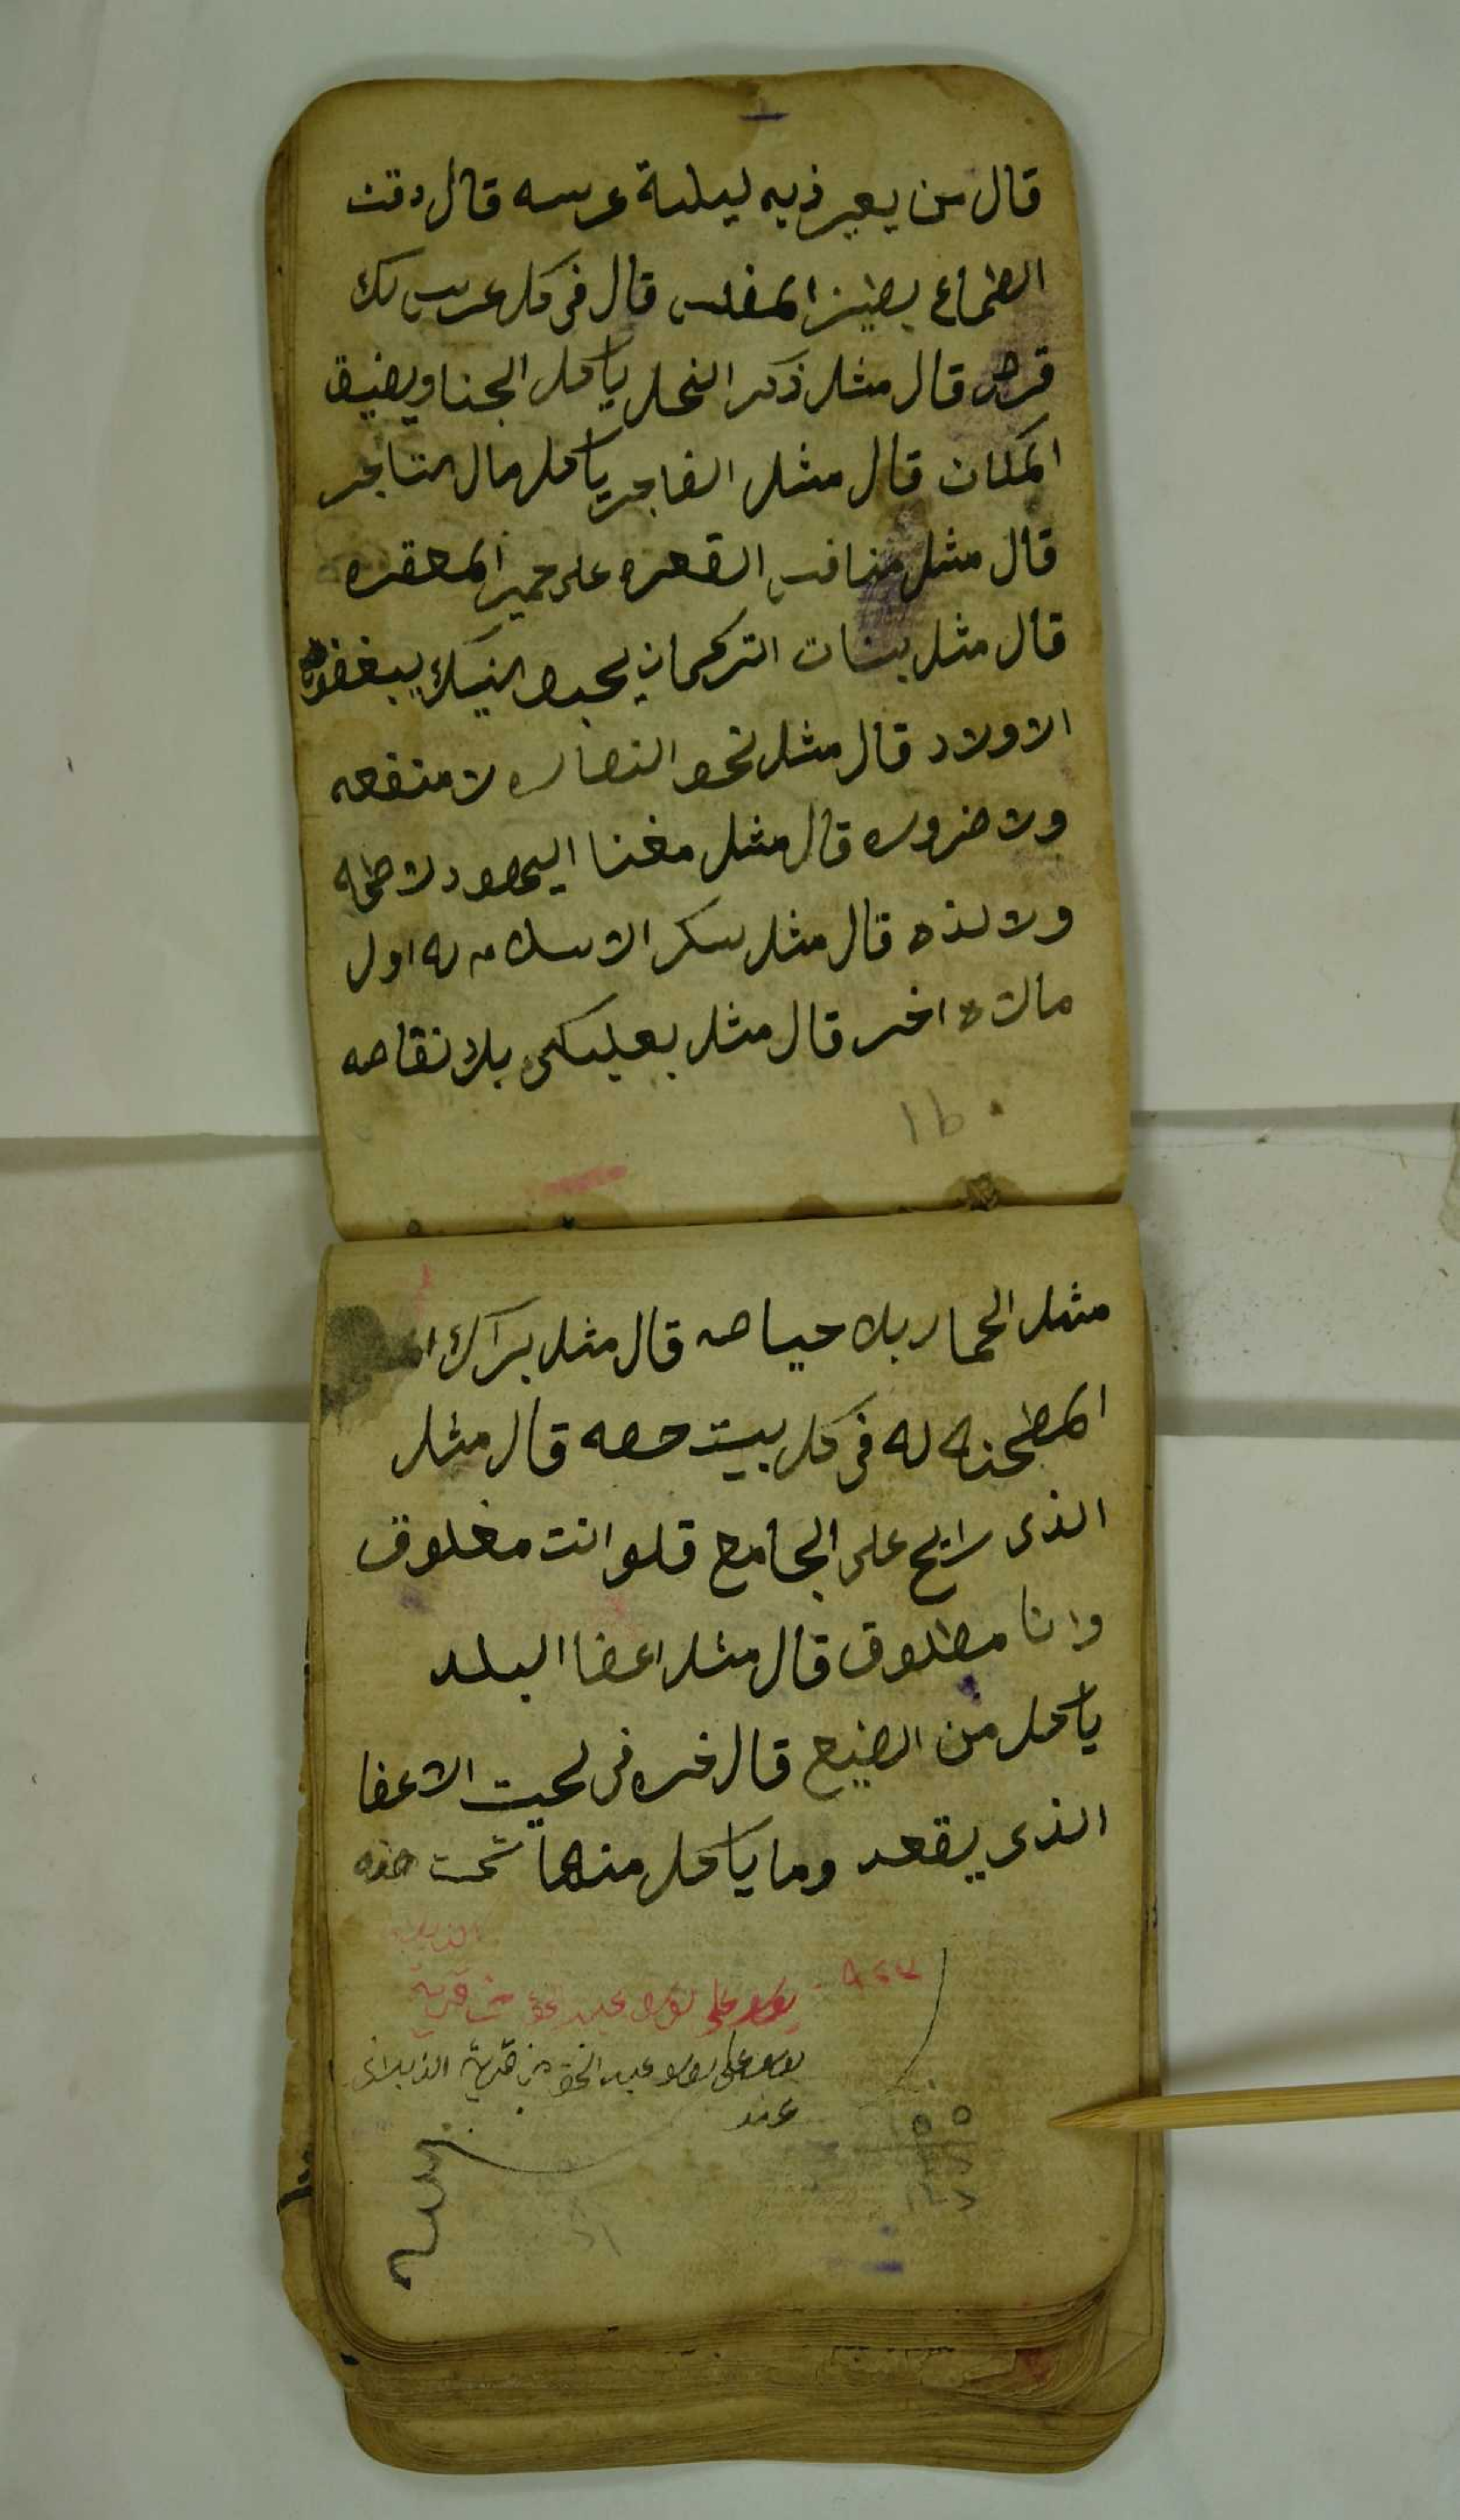 قال من يعير ذيه ليلة عرسه قال دقت
الطماع بطيز المفلس قال في كل عرس لك
قرص قال مثل ذكر النحل ياكل الجنا ويضيق
المكان قال مثل الفاجر ياكل مال التاجر
قال مثل منافس القعره على حمير المعقره
قال مثل بنات التركمان يحبوا النيك يبغضون
الاولاد قال مثل نحو النصاره لا منفعه
ولا ضروره قال مثل مغنا اليهود لا طعمه
ولا لذه قال مثل سكر الاسلام له اول
مالاه اخر قال مثل بعلبكي بلا نقاصه
16
مثل الحمار بلا حياصه قال مثل براك
المطحنه له في كل بيت حصه قال مثل
الذي رايح على الجامع قلو انت مغلوق
وانا مطلوق قال مثل اعضا البلد
ياكل من الضيع قال خره في لحيت الاعضا
الذي يقعد وما ياكل منها تمت هذه
علي عبد من قرية
علي عبد من قرية
عند